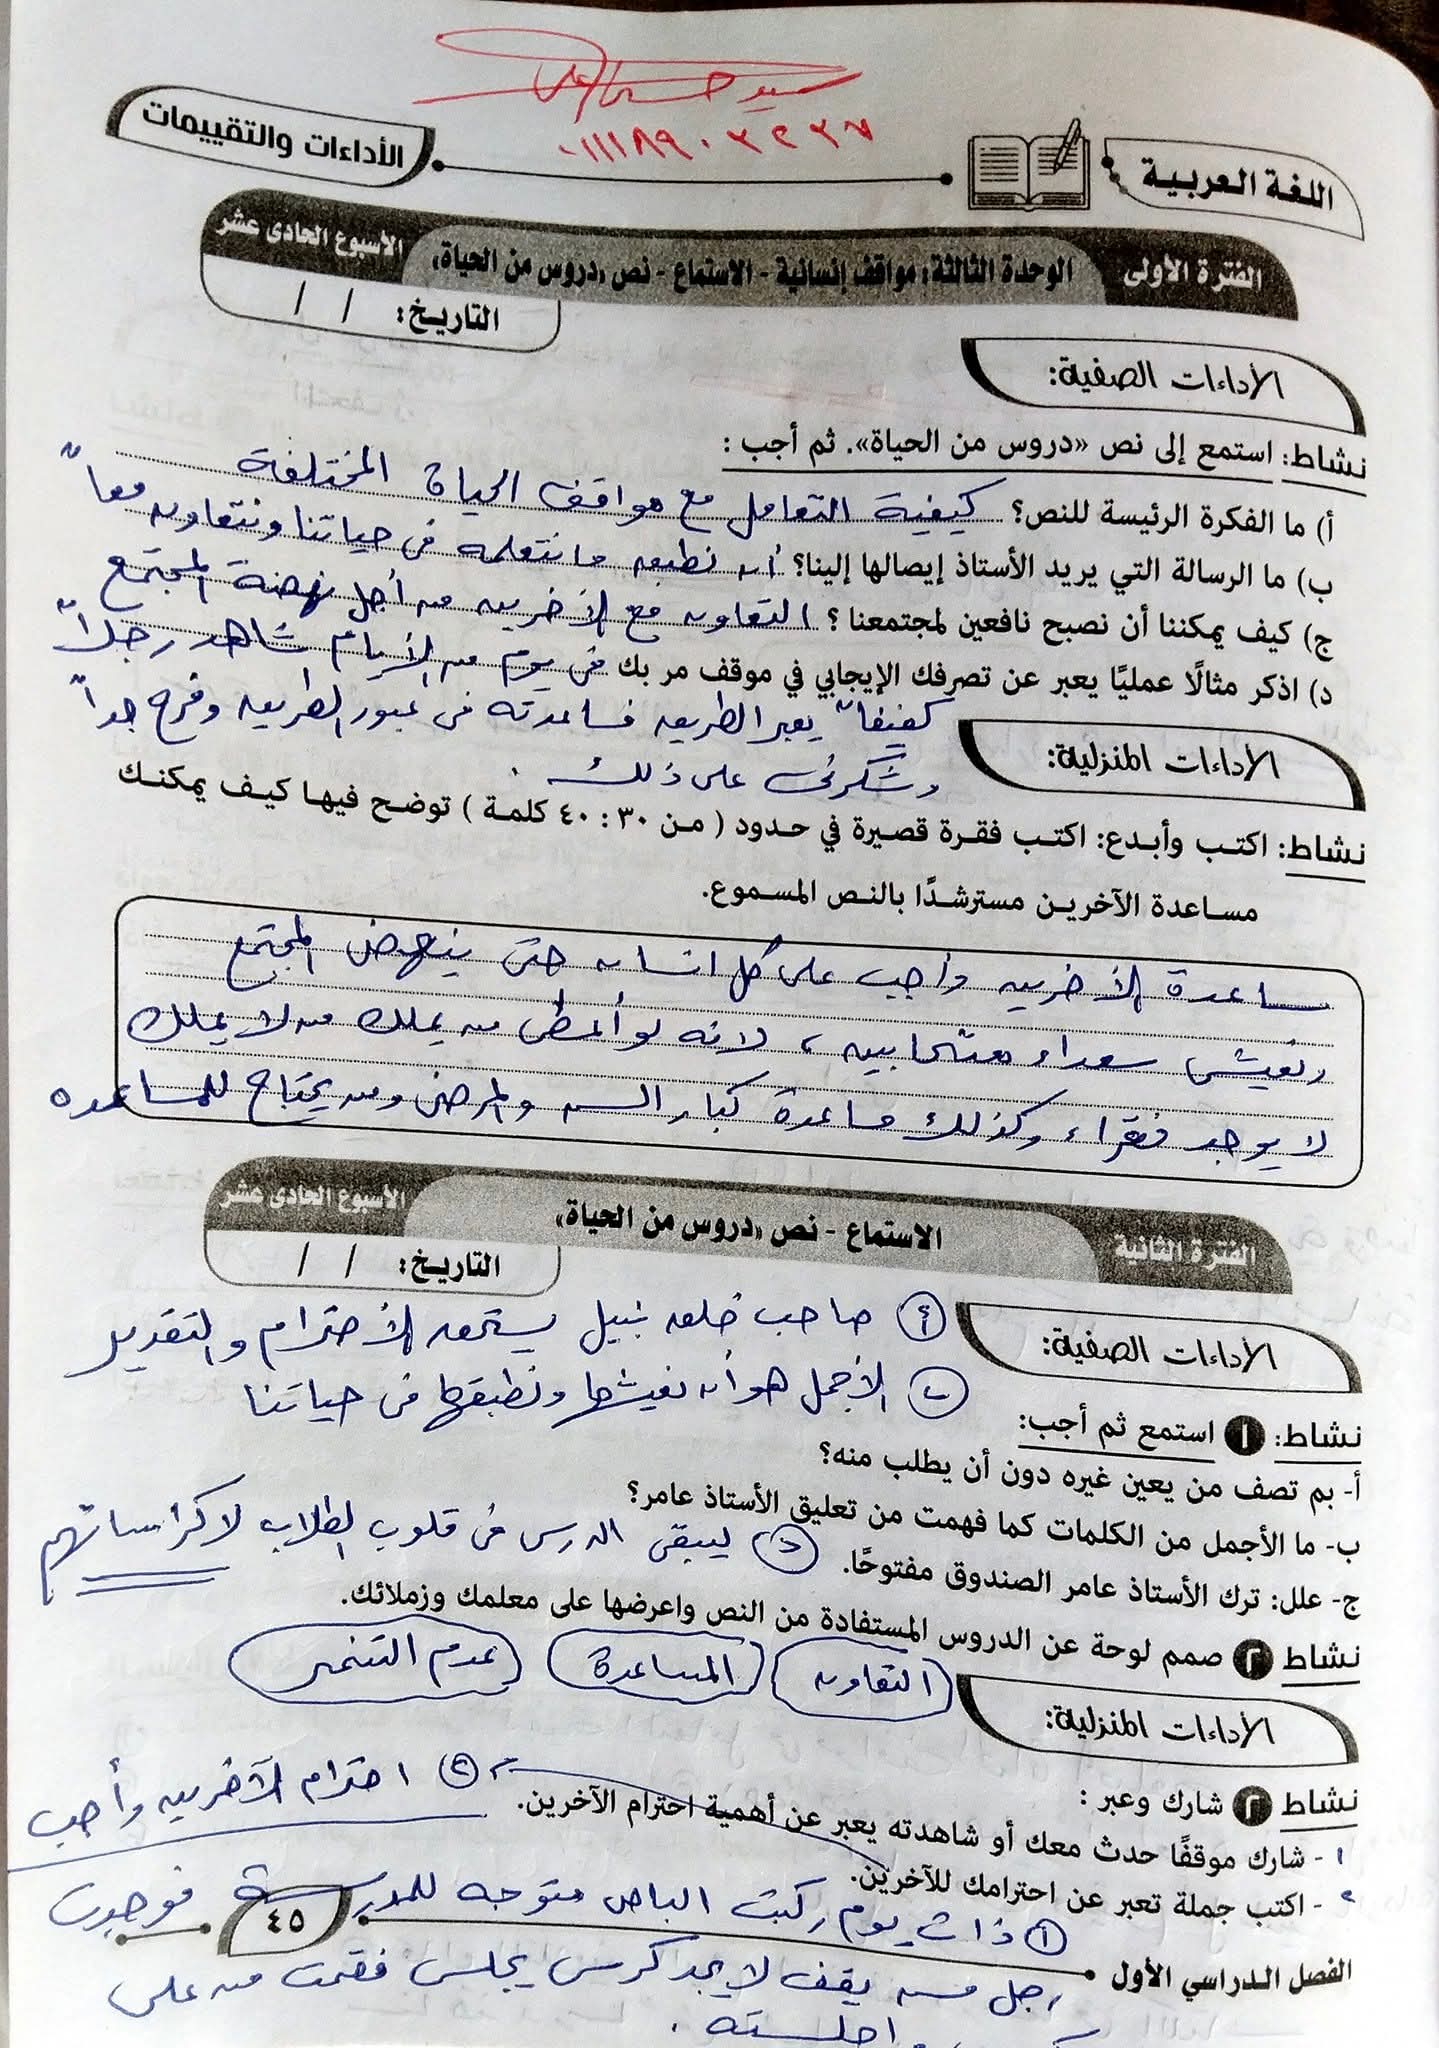 سيد حسن
اللغة العربية
الأداءات والتقييمات
الفترة الأولى
الوحدة الثالثة: مواقف إنسانية - الاستماع - نص «دروس من الحياة»
الأسبوع الحادى عشر
التاريخ: / /
الأداءات الصفية:
نشاط: استمع إلى نص «دروس من الحياة». ثم أجب :
أ) ما الفكرة الرئيسة للنص؟ كيفية التعامل مع مواقف الحياة المختلفة
ب) ما الرسالة التي يريد الأستاذ إيصالها إلينا؟ أن نطبق ما نتعلمه في حياتنا ونتعاون معاً
ج) كيف يمكننا أن نصبح نافعين لمجتمعنا ؟ التعاون مع الآخرين من أجل نهضة المجتمع
د) اذكر مثالًا عمليًا يعبر عن تصرفك الإيجابي في موقف مر بك في يوم من الأيام شاهد رجلاً
كفيفاً يعبر الطريق فساعدته في عبور الطريق وفرح جداً
وشكرني على ذلك .
الأداءات المنزلية:
نشاط: اكتب وأبدع: اكتب فقرة قصيرة في حدود ( من ٣٠ : ٤٠ كلمة ) توضح فيها كيف يمكنك
مساعدة الآخرين مسترشدًا بالنص المسموع.
مساعدة الآخرين واجب على كل انسان حتى ينهض المجتمع
ونعيش سعداء متحابين ، لانه لو أعطى من يملك من لا يملك
لا يوجد فقراء وكذلك مساعدة كبار السن والمرضى ومن يحتاج للمساعده
الفترة الثانية
الاستماع - نص «دروس من الحياة»
الأسبوع الحادى عشر
التاريخ: / /
الأداءات الصفية:
أ صاحب خلق نبيل يستحق الاحترام والتقدير
ب الأجمل هو أن نعيشها ونطبقها في حياتنا
نشاط: ١ استمع ثم أجب:
أ- بم تصف من يعين غيره دون أن يطلب منه؟
ب- ما الأجمل من الكلمات كما فهمت من تعليق الأستاذ عامر؟
ج- علل: ترك الأستاذ عامر الصندوق مفتوحًا. ج ليبقى الدرس في قلوب الطلاب لا كراساتهم
نشاط ٢ صمم لوحة عن الدروس المستفادة من النص واعرضها على معلمك وزملائك.
التعاون المساعدة عدم التنمر
الأداءات المنزلية:
نشاط ٢ شارك وعبر :
١ - شارك موقفًا حدث معك أو شاهدته يعبر عن أهمية احترام الآخرين.
٢ - اكتب جملة تعبر عن احترامك للآخرين.
٢ احترام الآخرين واجب
١ ذات يوم ركبت الباص متوجه للمدرسة فوجدت
رجل مسن يقف لا يجد كرسى يجلس فقمت من على
واجلسته .
٤٥
الفصل الدراسي الأول